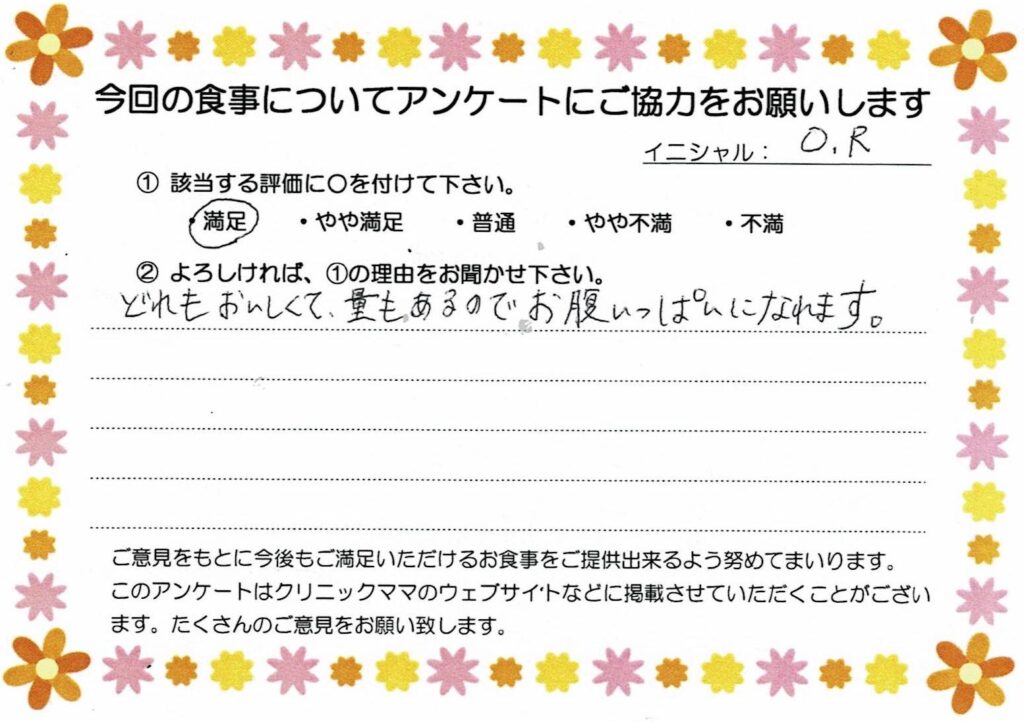 今回の食事についてアンケートにご協力をお願いします
イニシャル： O.R
① 該当する評価に〇を付けて下さい。
・満足 ・やや満足 ・普通 ・やや不満 ・不満
② よろしければ、①の理由をお聞かせ下さい。
どれもおいしくて、量もあるのでお腹いっぱいになれます。
ご意見をもとに今後もご満足いただけるお食事をご提供出来るよう努めてまいります。
このアンケートはクリニックママのウェブサイトなどに掲載させていただくことがござい
ます。たくさんのご意見をお願い致します。